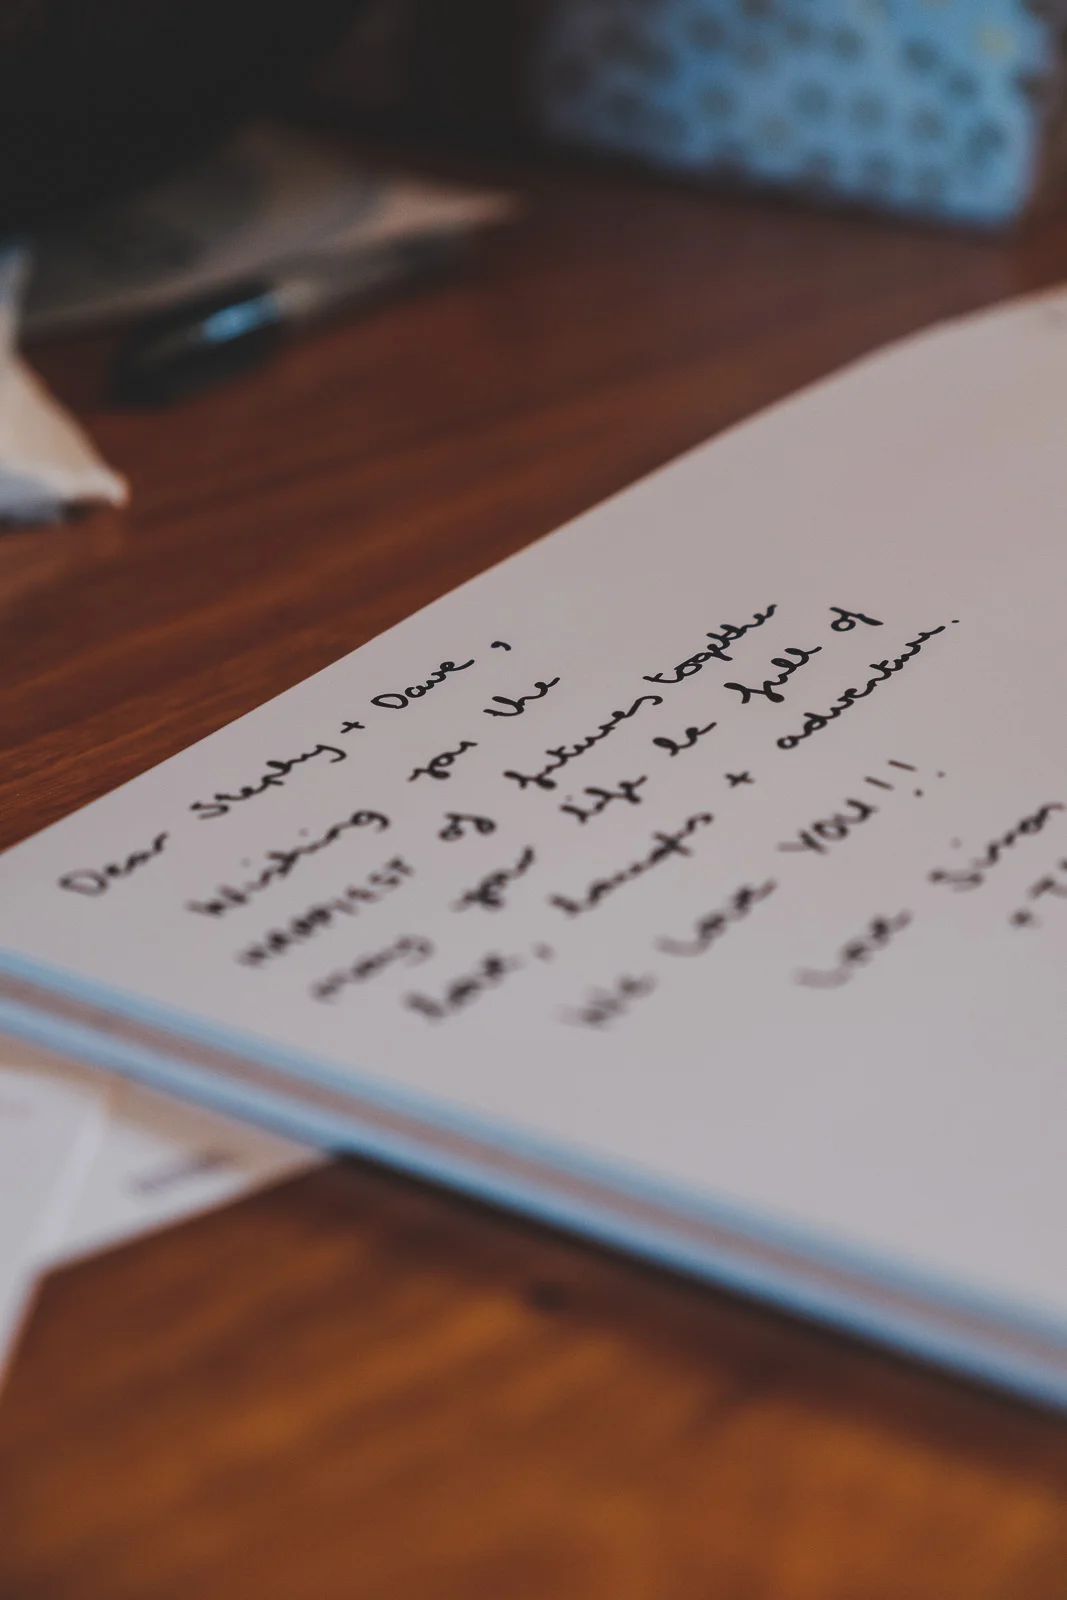 Dear Stephy + Dave,
Wishing you the
HAPPIEST of futures together
may your life be full of
love, laughs + adventure.
We Love YOU!!
Love Simon
+